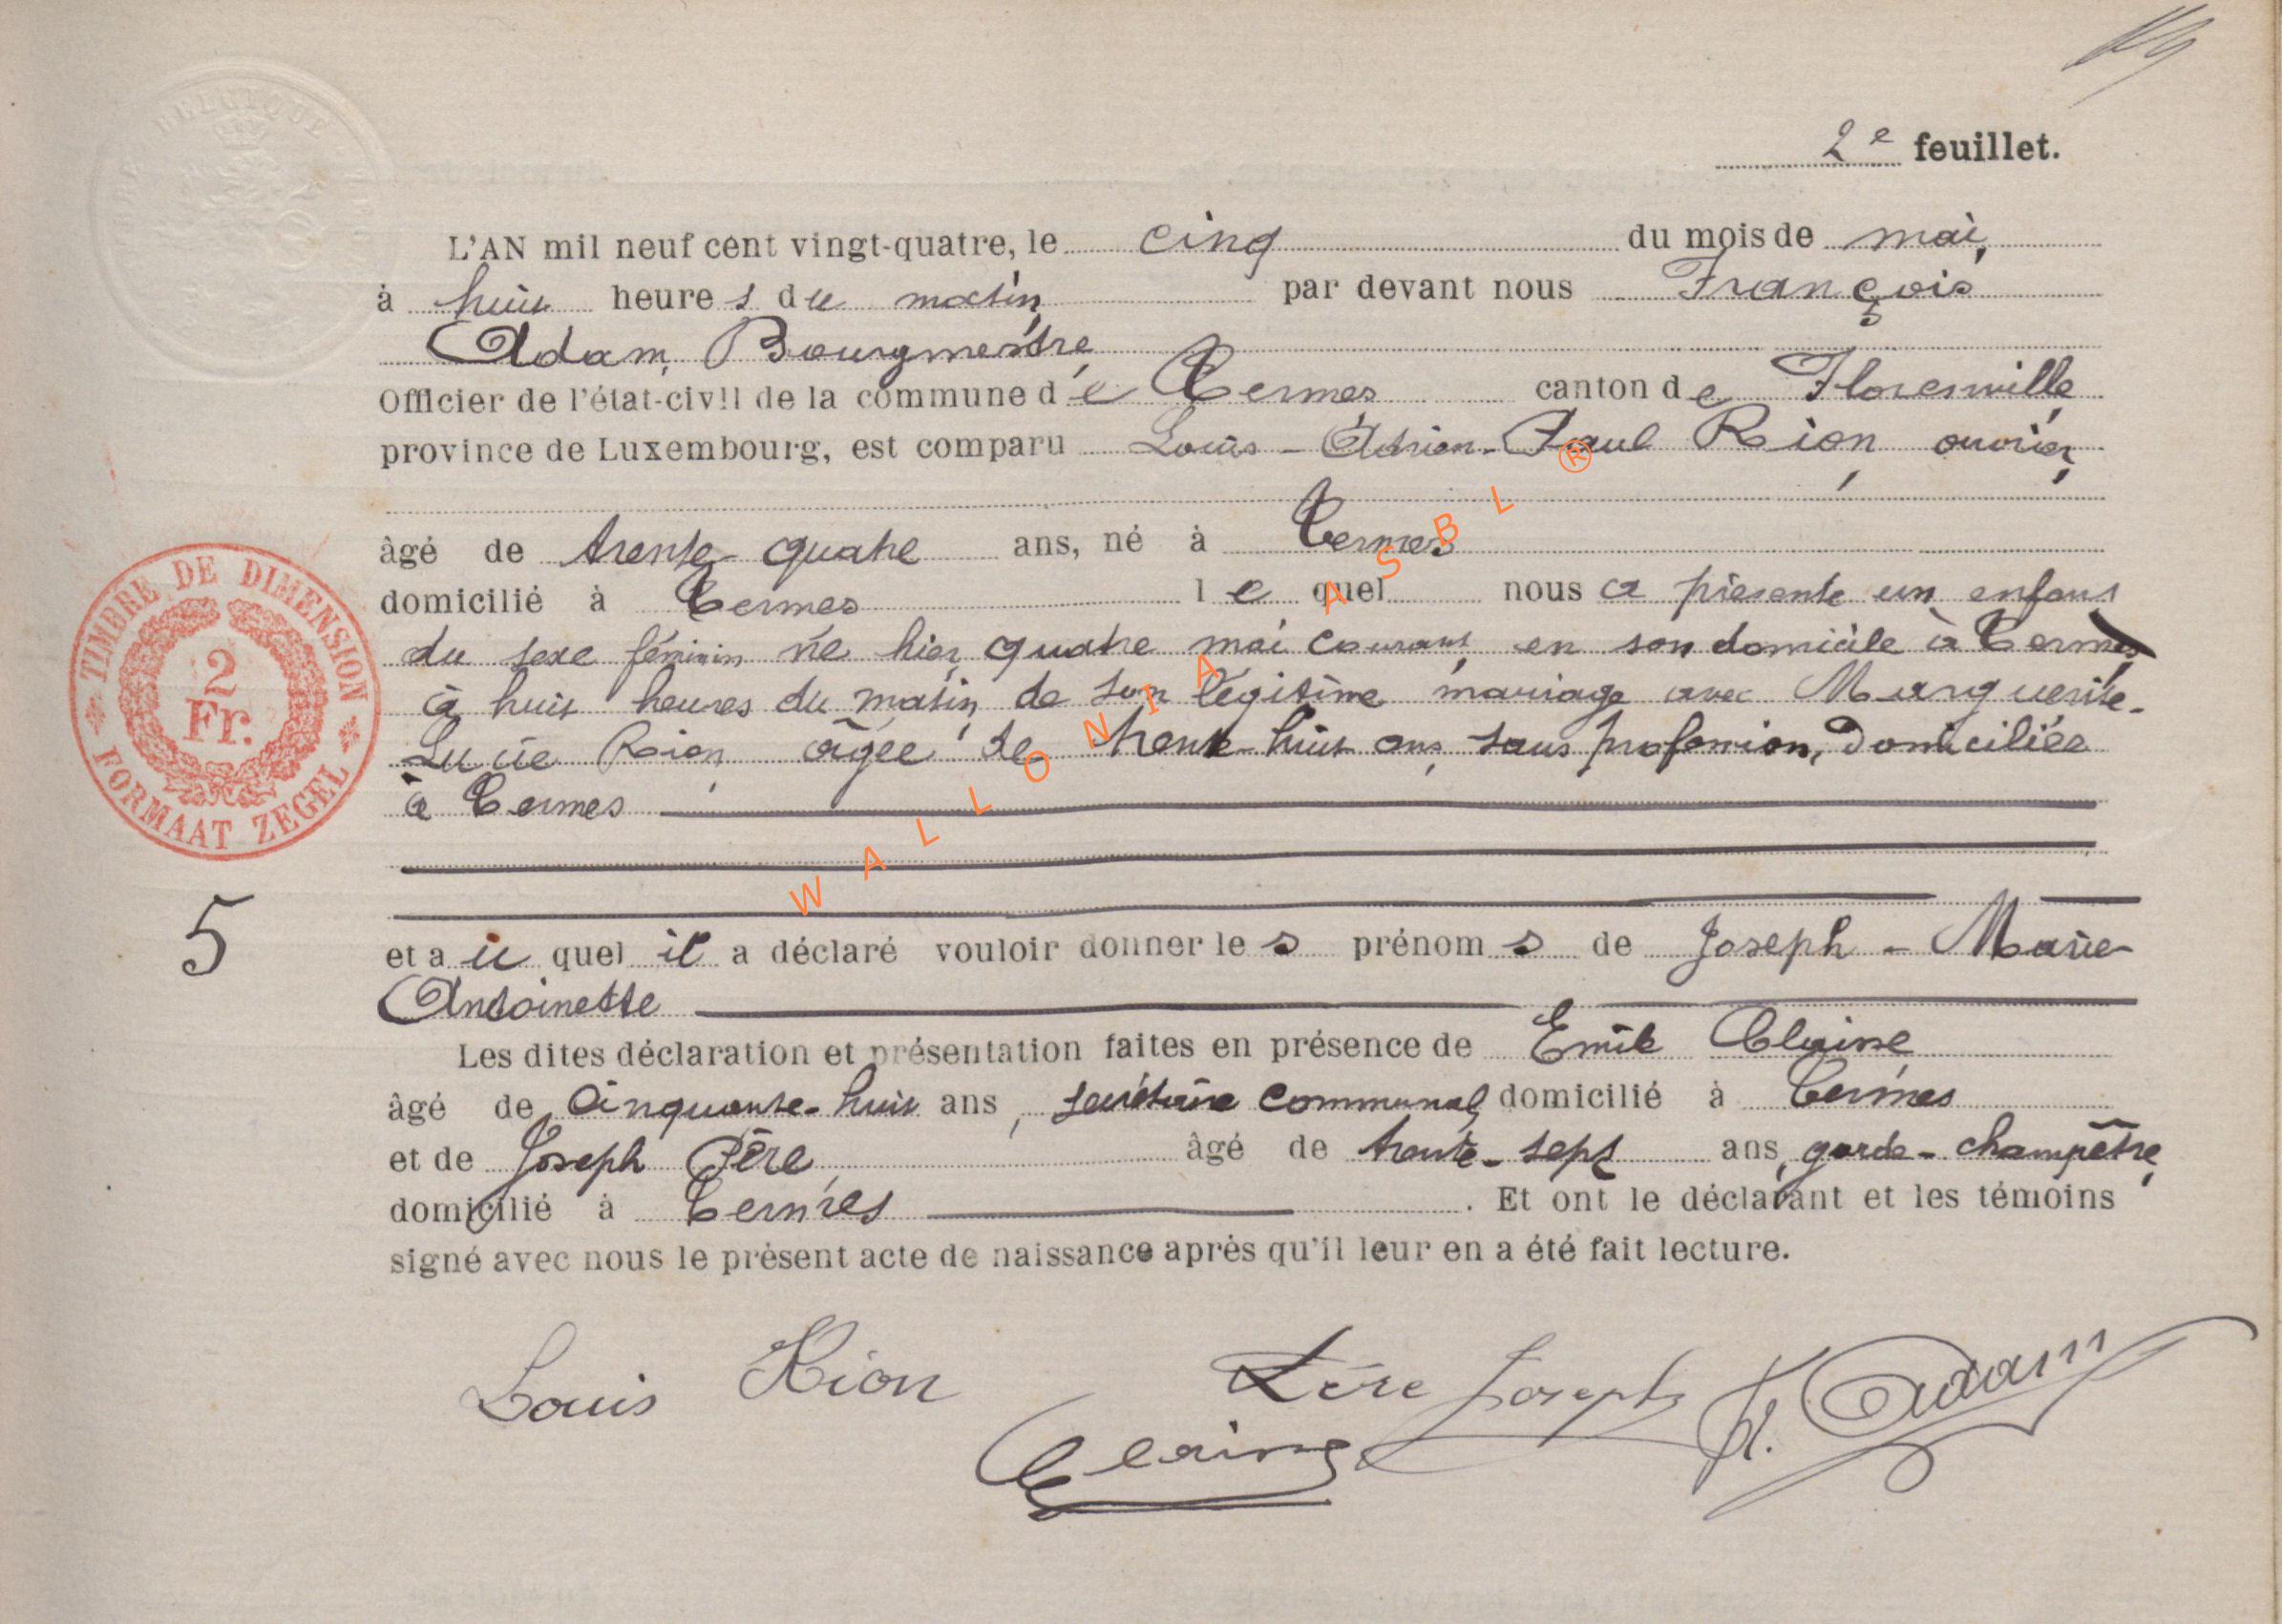 2e feuillet.
L'AN mil neuf cent vingt-quatre, le cinq du mois de mai,
à huit heures du matin par devant nous François
Adam, Bourgmestre,
Officier de l'état-civil de la commune de Termes canton de Florenville
province de Luxembourg, est comparu Louis-Adrien-Paul Rion, ouvrier,
âgé de trente-quatre ans, né à Termes
domicilié à Termes lequel nous a présenté un enfant
du sexe féminin né hier, quatre mai courant, en son domicile à Termes,
à huit heures du matin, de son légitime mariage avec Marguerite-
Lucie Rion, âgée de trente-huit ans, sans profession, domiciliés
à Termes
5
et auquel il a déclaré vouloir donner les prénoms de Joseph-Marie-
Antoinette
Les dites déclaration et présentation faites en présence de Emile Claine
âgé de cinquante-huit ans, secrétaire communal, domicilié à Termes
et de Joseph Père, âgé de trente-sept ans, garde-champêtre,
domicilié à Termes. Et ont le déclarant et les témoins
signé avec nous le présent acte de naissance après qu'il leur en a été fait lecture.
Louis Rion Père Joseph Fr. Adam
Claine
TIMBRE DE DIMENSION
2
Fr.
FORMAAT ZEGEL
BELGIQUE
WALLONIA ASBL ®